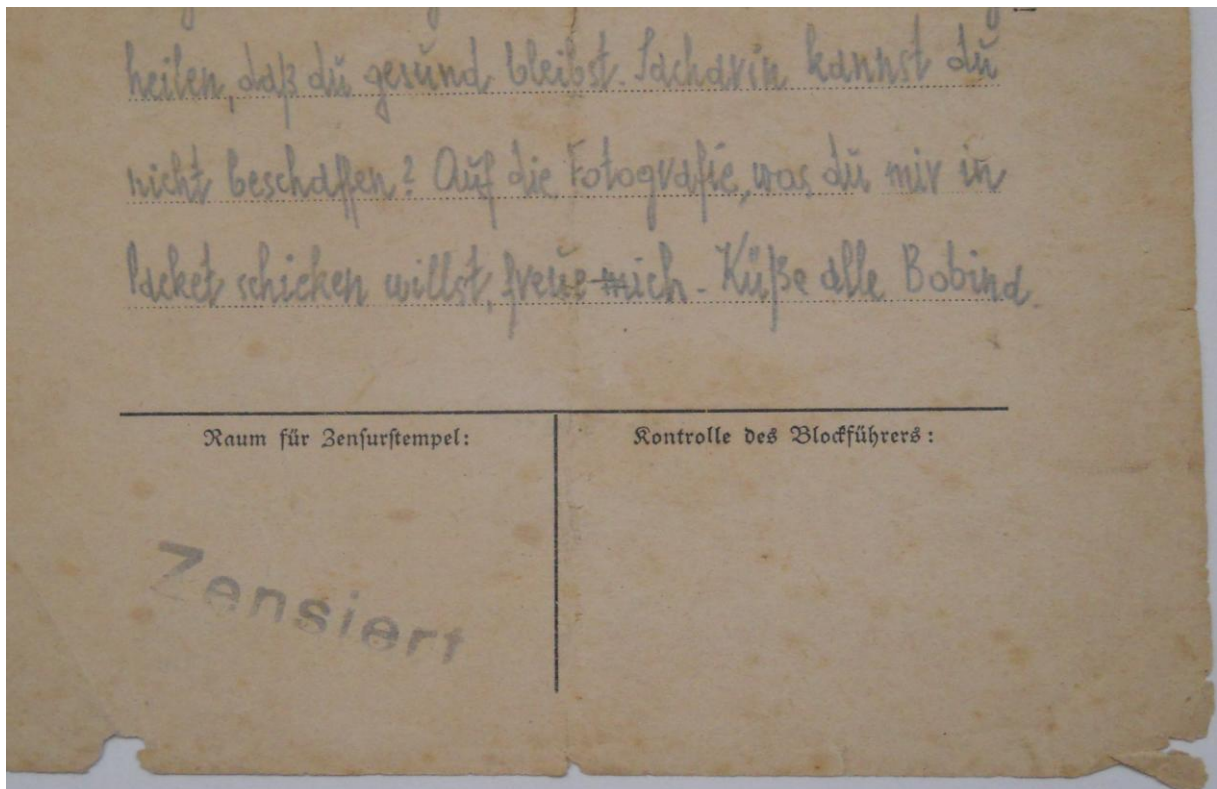 heilen, daß du gesund bleibst. Sacharin kannst du
nicht beschaffen? Auf die Fotografie, was du mir in
Packet schicken willst, freue mich. Küße alle Bobina.
Raum für Zensurstempel:
Kontrolle des Blockführers:
Zensiert